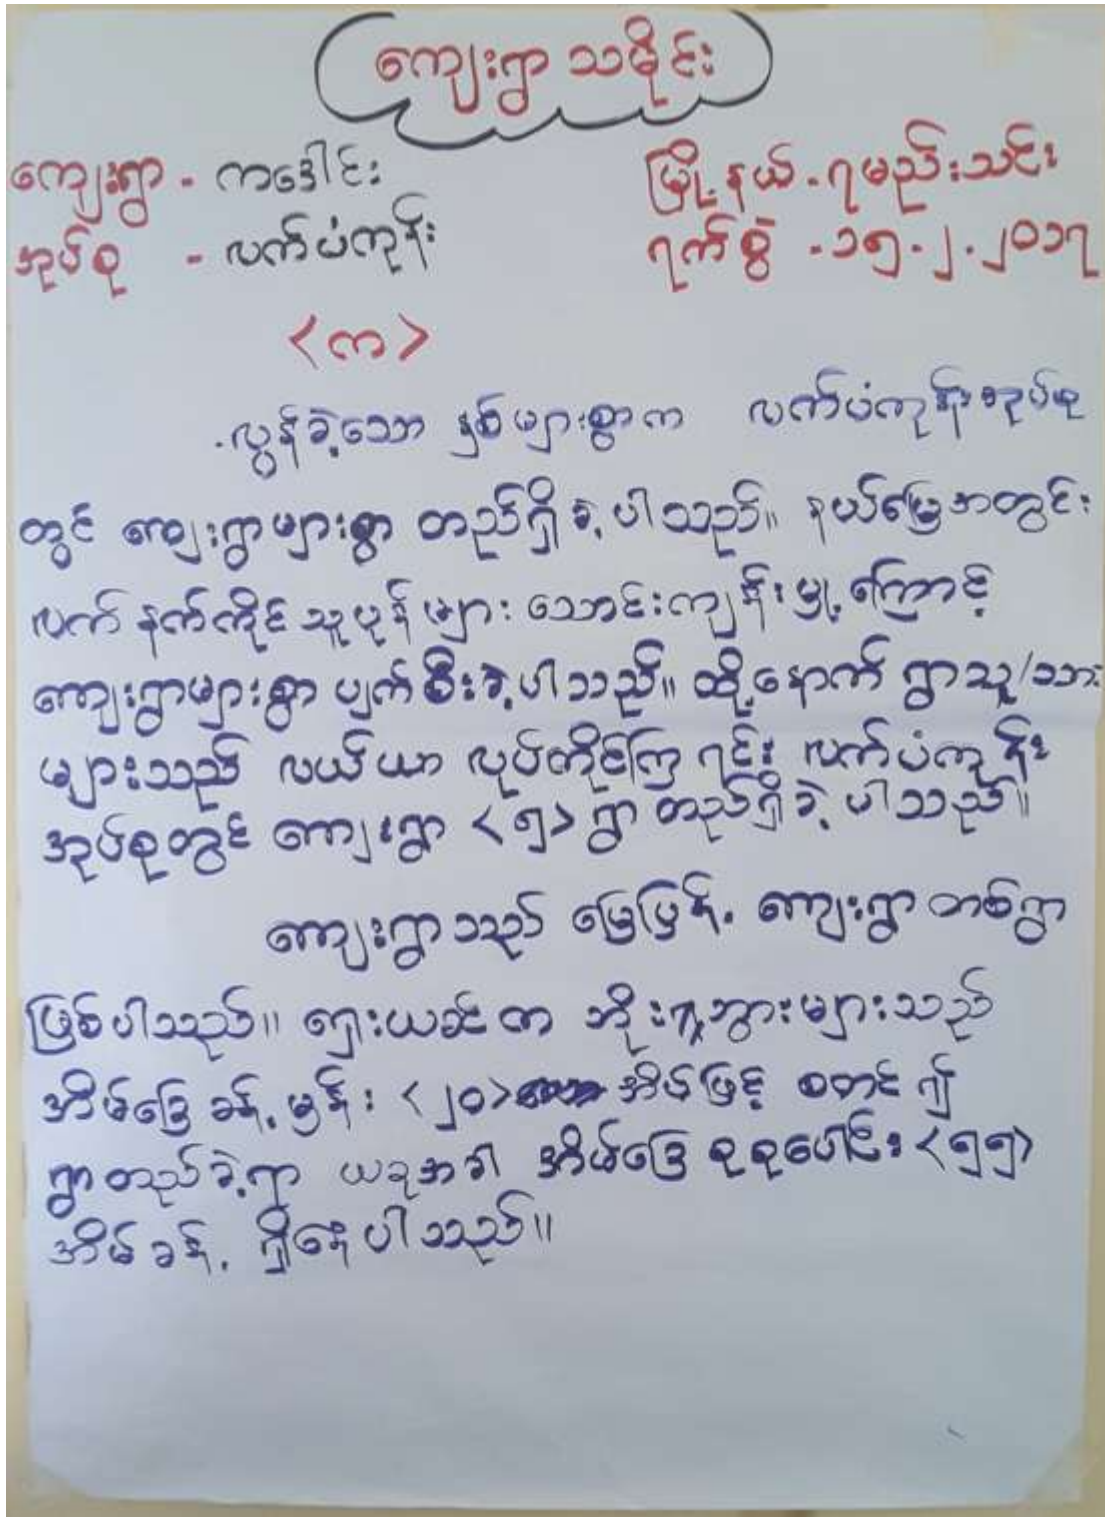 ကျေးရွာ သမိုင်း
ကျေးရွာ - ကဒေါင်း မြို့နယ် - ရမည်းသင်း
အုပ်စု - လက်ပံကုန်း ရက်စွဲ - ၁၅.၂.၂၀၁၇
<က>
.လွန်ခဲ့သော နှစ်များစွာက လက်ပံကုန်းအုပ်စု
တွင် ကျေးရွာများစွာ တည်ရှိခဲ့ပါသည်။ နယ်မြေအတွင်း
လက်နက်ကိုင်သူပုန်များ သောင်းကျန်းမှု့ကြောင့်
ကျေးရွာများစွာ ပျက်စီးခဲ့ပါသည်။ ထို့နောက် ရွာသူ/သား
များသည် လယ်ယာ လုပ်ကိုင်ကြရင်း လက်ပံကုန်း
အုပ်စုတွင် ကျေးရွာ <၅> ရွာ တည်ရှိခဲ့ပါသည်။
ကျေးရွာသည် မြေပြန့် ကျေးရွာတစ်ရွာ
ဖြစ်ပါသည်။ ရှေးယခင်က ဘိုးဘွားများသည်
အိမ်ခြေခန့်မှန်း <၂၀> အိမ်ဖြင့် စတင်၍
ရွာတည်ခဲ့ရာ ယခုအခါ အိမ်ခြေစုစုပေါင်း <၅၅>
အိမ်ခန့် ရှိနေပါသည်။